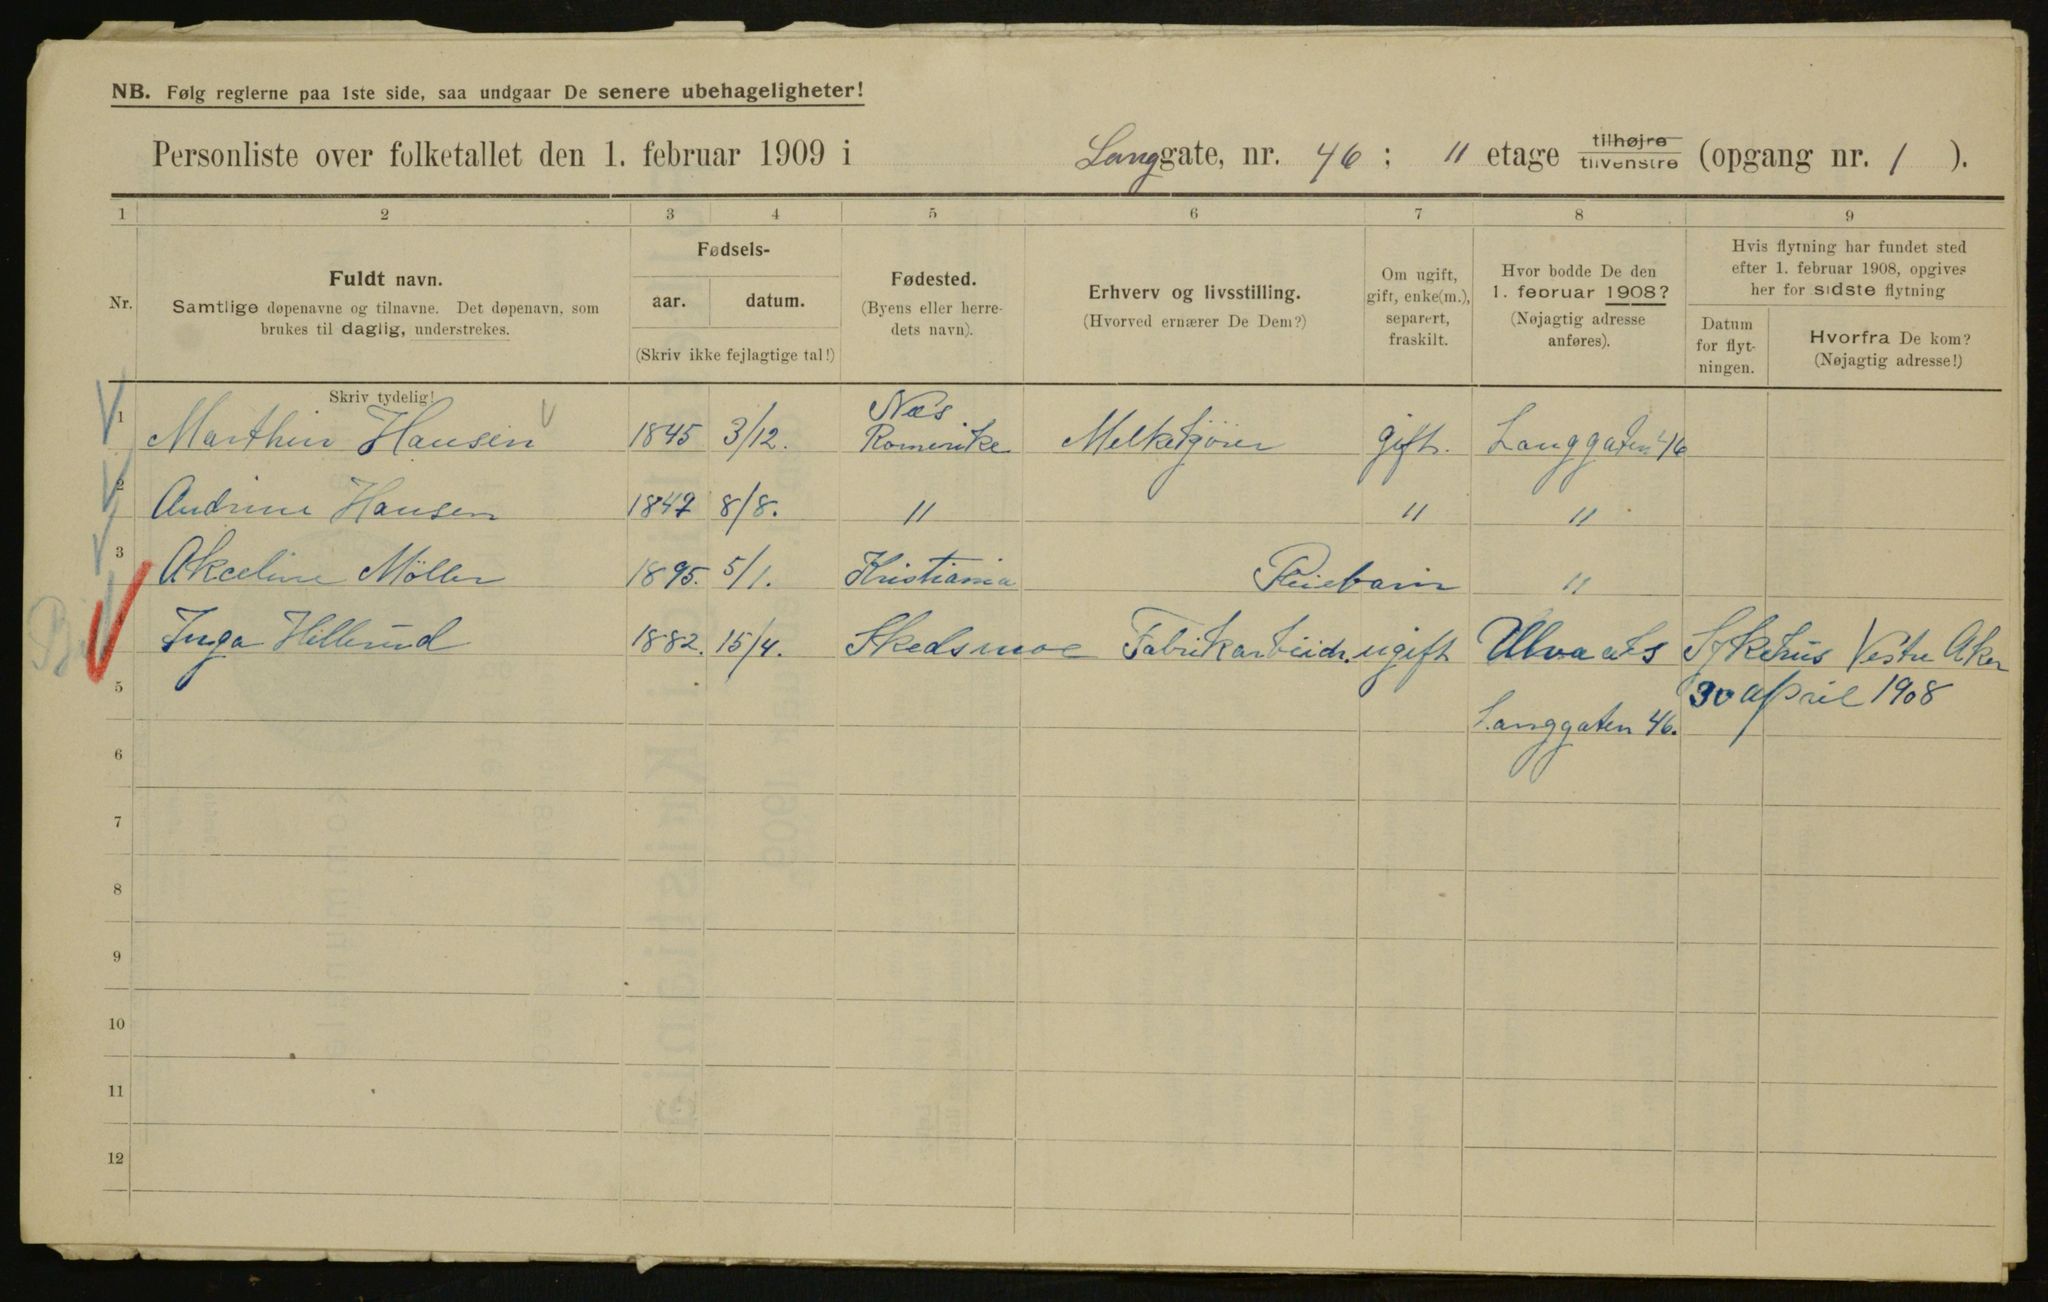 NB. Følg reglerne paa 1ste side, saa undgaar De senere ubehageligheter!
Personliste over folketallet den 1. februar 1909 i Langgate, nr. 46 ; 11 etage tilhøjre tilvenstre (opgang nr. 1 ).
1 2 3 4 5 6 7 8 9
Nr.
Fuldt navn.
Samtlige døpenavne og tilnavne. Det døpenavn, som
brukes til daglig, understrekes.
Skriv tydelig!
Fødsels-
aar. datum.
(Skriv ikke fejlagtige tal!)
Fødested.
(Byens eller herre-
dets navn).
Erhverv og livsstilling.
(Hvorved ernærer De Dem?)
Om ugift,
gift, enke(m.),
separert,
fraskilt.
Hvor bodde De den
1. februar 1908?
(Nøjagtig adresse
anføres).
Hvis flytning har fundet sted
efter 1. februar 1908, opgives
her for sidste flytning
Datum
for flyt-
ningen.
Hvorfra De kom?
(Nøjagtig adresse!)
1 Marthin Hansen 1845 3/12. Næs Romerike Melkekjører gift. Langgaten 46
2 Andrine Hansen 1847 8/8. " " "
3 Akceline Möller 1895. 5/1. Kristiania Pleiebarn "
Inga Hillerud 1882. 15/4. Skedsmoe Fabrikarbeidr. ugift Vestre Aker
5 Langgaten 46. 30 april 1908
6
7
8
9
10
11
12